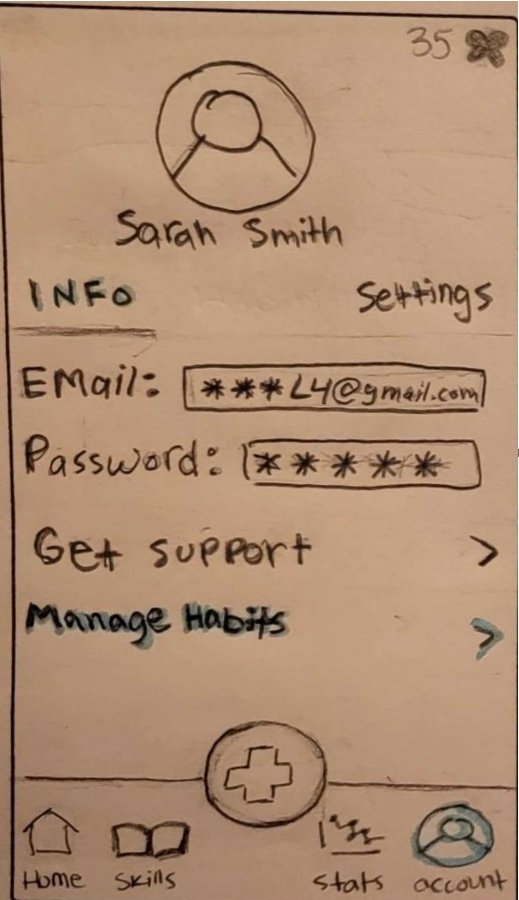 35
Sarah Smith
INFO Settings
EMail: ***L4@gmail.com
Password: *****
Get support >
Manage Habits >
Home Skills stats account